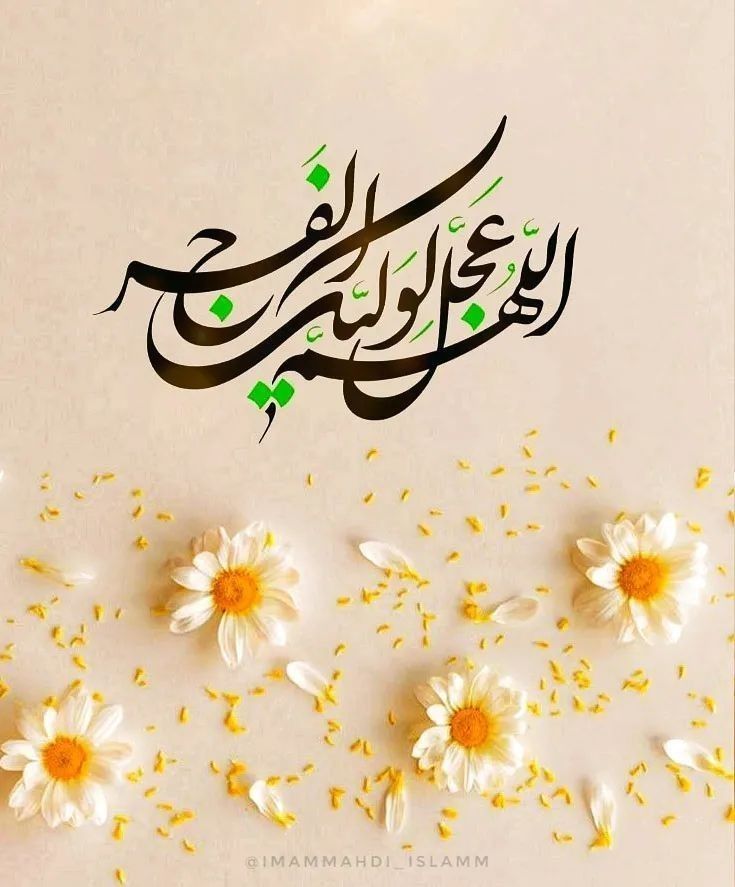 اللّهُمَّ عَجِّل لِوَلیِّکَ الفَرَج
@IMAMMAHDI_ISLAMM